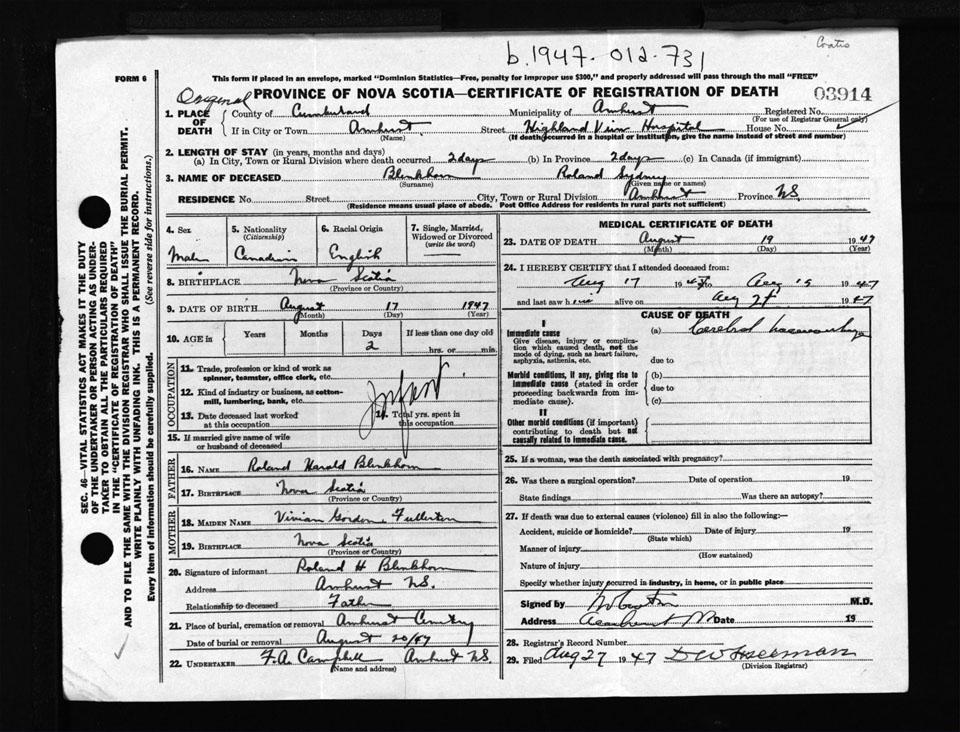 Coates
b.1947-012-731
FORM 6
This form if placed in an envelope, marked "Dominion Statistics—Free, penalty for improper use $300," and properly addressed will pass through the mail "FREE"
Original
PROVINCE OF NOVA SCOTIA—CERTIFICATE OF REGISTRATION OF DEATH
03914
1. PLACE OF DEATH
County of Cumberland Municipality of Amherst Registered No.
(For use of Registrar General only)
If in City or Town Amherst Street Highland View Hospital House No.
(Name) (If death occurred in a hospital or institution, give the name instead of street and number)
2. LENGTH OF STAY (in years, months and days)
(a) In City, Town or Rural Division where death occurred 2 days (b) In Province 2 days (c) In Canada (if immigrant)
3. NAME OF DECEASED Blenkhorn Roland Sydney
(Surname) (Given name or names)
RESIDENCE No. Street City, Town or Rural Division Amherst Province N.S.
(Residence means usual place of abode. Post Office Address for residents in rural parts not sufficient)
4. Sex 5. Nationality (Citizenship) 6. Racial Origin 7. Single, Married, Widowed or Divorced (write the word)
Male Canadian English
8. BIRTHPLACE Nova Scotia
(Province or Country)
9. DATE OF BIRTH August 17 1947
(Month) (Day) (Year)
10. AGE in Years Months Days If less than one day old
2 hrs. or min.
OCCUPATION
11. Trade, profession or kind of work as spinner, teamster, office clerk, etc.
12. Kind of industry or business, as cotton-mill, lumbering, bank, etc.
Infant
13. Date deceased last worked at this occupation 14. Total yrs. spent in this occupation
15. If married give name of wife or husband of deceased
FATHER
16. NAME Roland Harold Blenkhorn
17. BIRTHPLACE Nova Scotia
(Province or Country)
MOTHER
18. MAIDEN NAME Vivian Gordon Fullerton
19. BIRTHPLACE Nova Scotia
(Province or Country)
20. Signature of informant Roland H Blenkhorn
Address Amherst N.S.
Relationship to deceased Father
21. Place of burial, cremation or removal Amherst Cemetery
Date of burial or removal August 20/47
22. UNDERTAKER F.A. Campbell Amherst N.S.
(Name and address)
MEDICAL CERTIFICATE OF DEATH
23. DATE OF DEATH August 19 1947
(Month) (Day)
24. I HEREBY CERTIFY that I attended deceased from:
Aug 17 1947 to Aug 1947
and last saw h alive on Aug 1947
CAUSE OF DEATH
I
Immediate cause (a) Cerebral haemorrhage
Give disease, injury or complication which caused death, not the mode of dying, such as heart failure, asphyxia, asthenia, etc.
due to
Morbid conditions, if any, giving rise to immediate cause (stated in order proceeding backwards from immediate cause).
(b)
due to
(c)
II
Other morbid conditions (if important) contributing to death but not causally related to immediate cause.
25. If a woman, was the death associated with pregnancy?
26. Was there a surgical operation? Date of operation 19
State findings Was there an autopsy?
27. If death was due to external causes (violence) fill in also the following:—
Accident, suicide or homicide? Date of injury 19
(State which)
Manner of injury
(How sustained)
Nature of injury
Specify whether injury occurred in industry, in home, or in public place
Signed by M.D.
Address Date 19
28. Registrar's Record Number
29. Filed Aug 27 1947
(Division Registrar)
SEC. 46—VITAL STATISTICS ACT MAKES IT THE DUTY
OF THE UNDERTAKER OR PERSON ACTING AS UNDER-
TAKER TO OBTAIN ALL THE PARTICULARS REQUIRED
IN THE "CERTIFICATE OF REGISTRATION OF DEATH"
AND TO FILE THE SAME WITH THE DIVISION REGISTRAR WHO SHALL ISSUE THE BURIAL PERMIT.
WRITE PLAINLY WITH UNFADING INK. THIS IS A PERMANENT RECORD.
Every item of information should be carefully supplied. (See reverse side for instructions.)